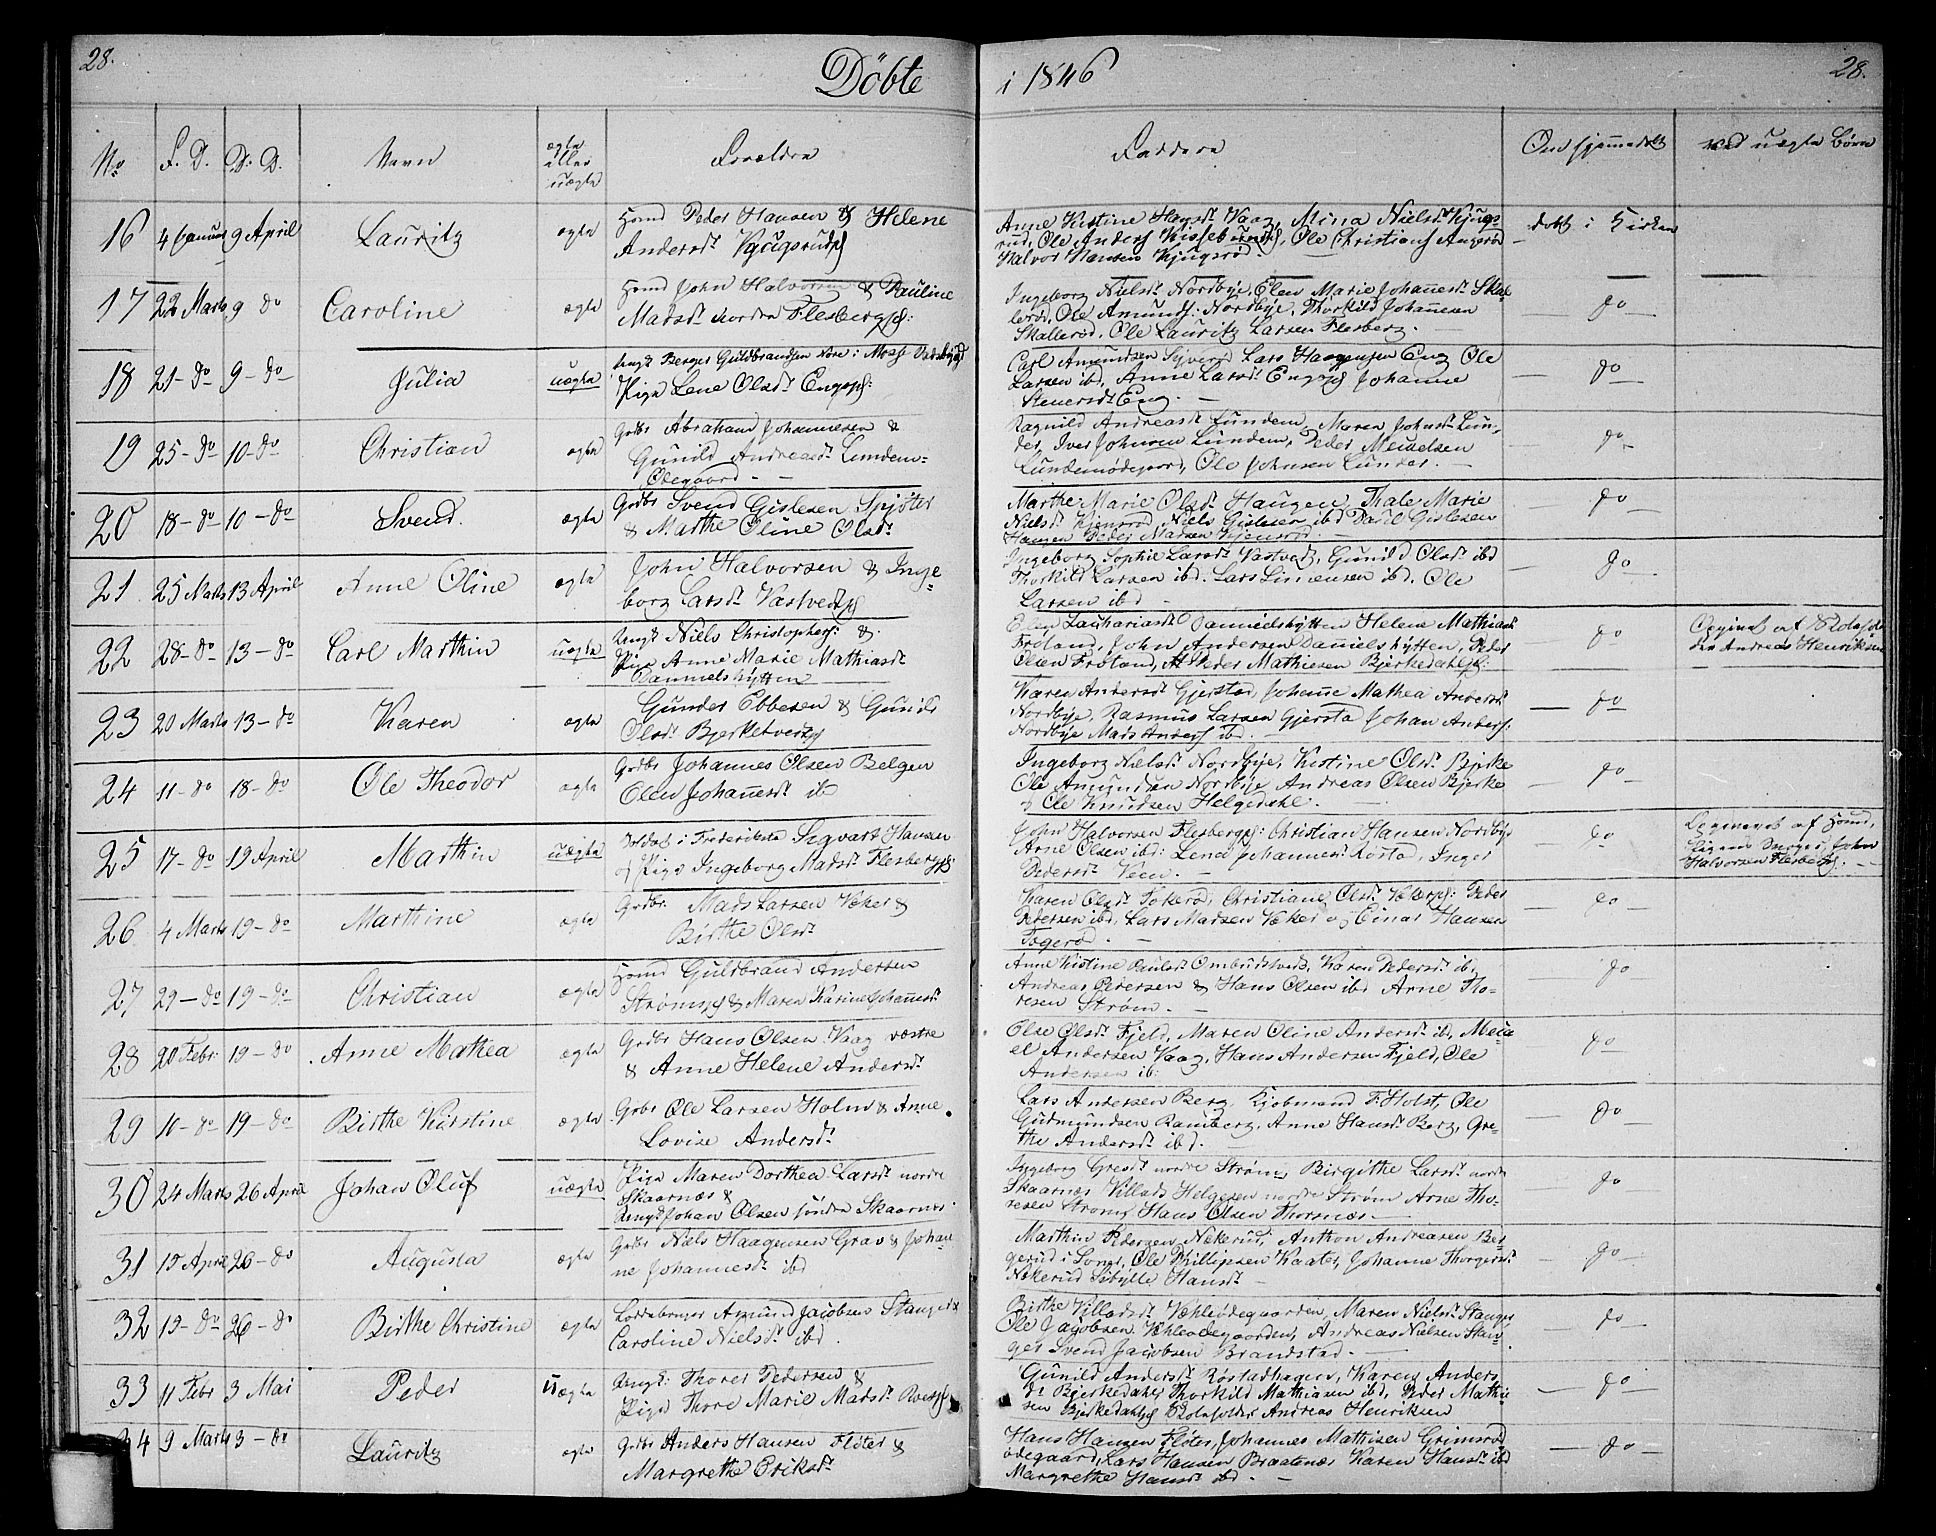 28. Döbte i 1846 28.
No F. D. D. D. Navn ægte eller uægte Forældre Faddere Om hjemmedøbt ved uægte Børn
16 4 Januar 9 April Lauritz ægte Hmd Peder Hansen & Helene
Andersdt.
Anne Kistine Hansdt. Vaag, Mina Nielsdt.
Ole Christians
Halvor Hansen
døbt i Kirken
17 22 Marts 9 do Caroline ægte Hmd John Halvorsen & Pauline
Madsdt. nordre Flesbergs
Ingeborg Nielsdt. Nordbye, Elen Marie Johannesdt.
Ole Amunds: Nordbye, Thorkild Johannesen
Skallerød, Ole Lauritz Larsen Flesberg.
do
18 21 - do 9 - do Julia uægte Ungk. Berger Guldbrandsen
Pige Lene Olsdt. Engs
Carl Amundsen Lars Haagensen Eng Ole
Larsen ibd, Anne Larsdt. Engs Johanne
Eng.
do
19 25 - do 10 - do Christian ægte Grdbr Abraham Johannesen &
Gunild Andreasdt. Lundem-
Ragnild Andreasdt Lundem, Maren Johnsdt. Lun-
der, Iver Johnsen Lundem, Peder
Ole Johnsen Lunder.
do
20 18 - do 10 - do Svend ægte Grdbr Svend Gislesen Spjöter
& Marthe Oline Olsdt.
Marthe Marie Olsdt. Haugen, Thale Marie
Nielsdt. Niels Gislesen ibd Gislesen
Haugen Peder Madsen
do
21 25 Marts 13 April Anne Oline ægte John Halvorsen & Inge-
borg Larsdt. Vastveds
Ingeborg Sophie Larsdt. Vastved, Gunild Olsdt. ibd
Thorkild Larsen ibd. Lars ibd. Ole
Larsen ibd
do
22 28 - do 13 - do Carl Marthin uægte Ungk. Niels Christophers: &
Pige Anne Marie Mathiasdt.
Dammelshytten
Elen Zachariasdt Helene Mathias
Froland, John Andersen Peder
Olsen Froland, Peder Mathiesen
do
Andreas Henriksen
23 20 Marts 13 - do Karen ægte Gunder Ebbesen & Gunild
Olsdt. Bjerketveds
Karen Andersdt. Gjerstad, Johanne Mathea Andersdt
Nordbye, Rasmus Larsen Gjerstad Johan Anders:
Nordbye Mads Anders ibd.
do
24 11 - do 18 - do Ole Theodor ægte Grdbr Johannes Olsen Belgen
Elen Johannesdt. ibd
Ingeborg Nielsdt. Nordbye, Kistine Olsdt. Bjerke
Ole Amundsen Nordbye Andreas Olsen Bjerke
og Ole Knudsen Helgedahl.
do
25 17 - do 19 April Marthin uægte Soldat i Frederiksta Sigvart Hansen
og Pige Ingeborg Madsdt. Flesbergs
John Halvorsen Flesbergs: Christian Hansen Nordby
Arne Olsen ibd: Lena Johannesdt. Röstad, Inger
Pedersdt. Veen.
do
Opgivet af Hmd,
John
Halvorsen Flesberg.
26 4 Marts 19 - do Marthine ægte Grdbr. Mads Larsen Væker &
Birthe Olsdt.
Karen Olsdt. Christiane Olsdt. Peder
Pedersen ibd, Lars Madsen Væker og Einar Hansen
do
27 29 - do 19 - do Christian ægte Hmd Guldbrand Andersen
Ströms & Maren Karine Johannesdt
Anne Kistine Paulsdt Ombudstved, Karen Pedersdt. ib,
Andreas Pedersen & Hans Olsen ibd Arne Tho-
resen Ström.
do
28 20 Febr: 19 - do Anne Mathea ægte Grdbr Hans Olsen Vaag væstre
& Anne Helene Andersdt.
Else Olsdt. Fjeld, Maren Oline Andersdt. ibd,
Andersen Vaag, Hans Andersen Fjeld, Ole
Andersen ib:
do
29 10 - do 19 - do Birthe Kirstine ægte Grdbr Ole Larsen Holm & Anne
Lovise Andersdt.
Lars Andersen Berg, Kjöbmand F: Holst, Ole
Gudmundsen Ramberg, Anne Hansdt. Berg, Gre-
the Andersdt. ibd.
do
30 24 Marts 26 April Johan Oluf uægte Pige Maren Dorthea Larsdt. nordre
Skaarnæs &
Ungk. Johan Olsen söndre Skaarnæs.
Ingeborg nordre Ström, Birgithe Larsdt. nordre
Skaarnæs Villads Helgesen nordre Ström Arne Tho-
resen Ström, Hans Olsen Thorsnæs
do
31 15 April 26 - do Augusta ægte Grdbr Niels Haagensen Grav & Johan-
ne Johannesdt. ibd
Marthin Pedersen Nækerud, Anthon Andreasen Ber-
gerud i Ole Phillipsen Kaate, Johanne Thorgersdt.
Nækerud Sibylle Hansdt.
do
32 19 - do 26 - do Birthe Christine ægte Amund Jacobsen Stanger &
Caroline Nielsdt. ibd.
Birthe Villadsdt. Maren Nielsdt. Stanger
Ole Jacobsen Andreas Nielsen Stan-
ger Svend Jacobsen Brandstad.
do
33 11 Febr 3 Mai Peder uægte Ungk: Thorer Pedersen &
Pige Thore Marie Madsdt.
Gunild Andersdt. Röstadhagen, Karen Anders
dt. Bjerkedahls Thorkild Mathiasen ibd, Peder Mathi-
sen Bjerkedahls Andreas Henriksen
do
34 9 Marts 3 - do Lauritz ægte Grdbr Anders Hansen Flöter &
Margrethe Eriksdt.
Hans Hansen Flöter, Johannes Mathisen Grimsrød
ødegaard, Lars Hansen Braatenæs Karen Hansdt. ibd
Margrethe Hansdt. ibd.
do